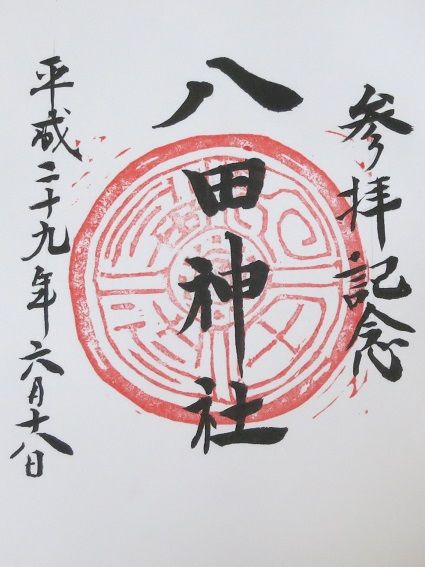 参拝記念
八田神社
平成二十九年六月十八日